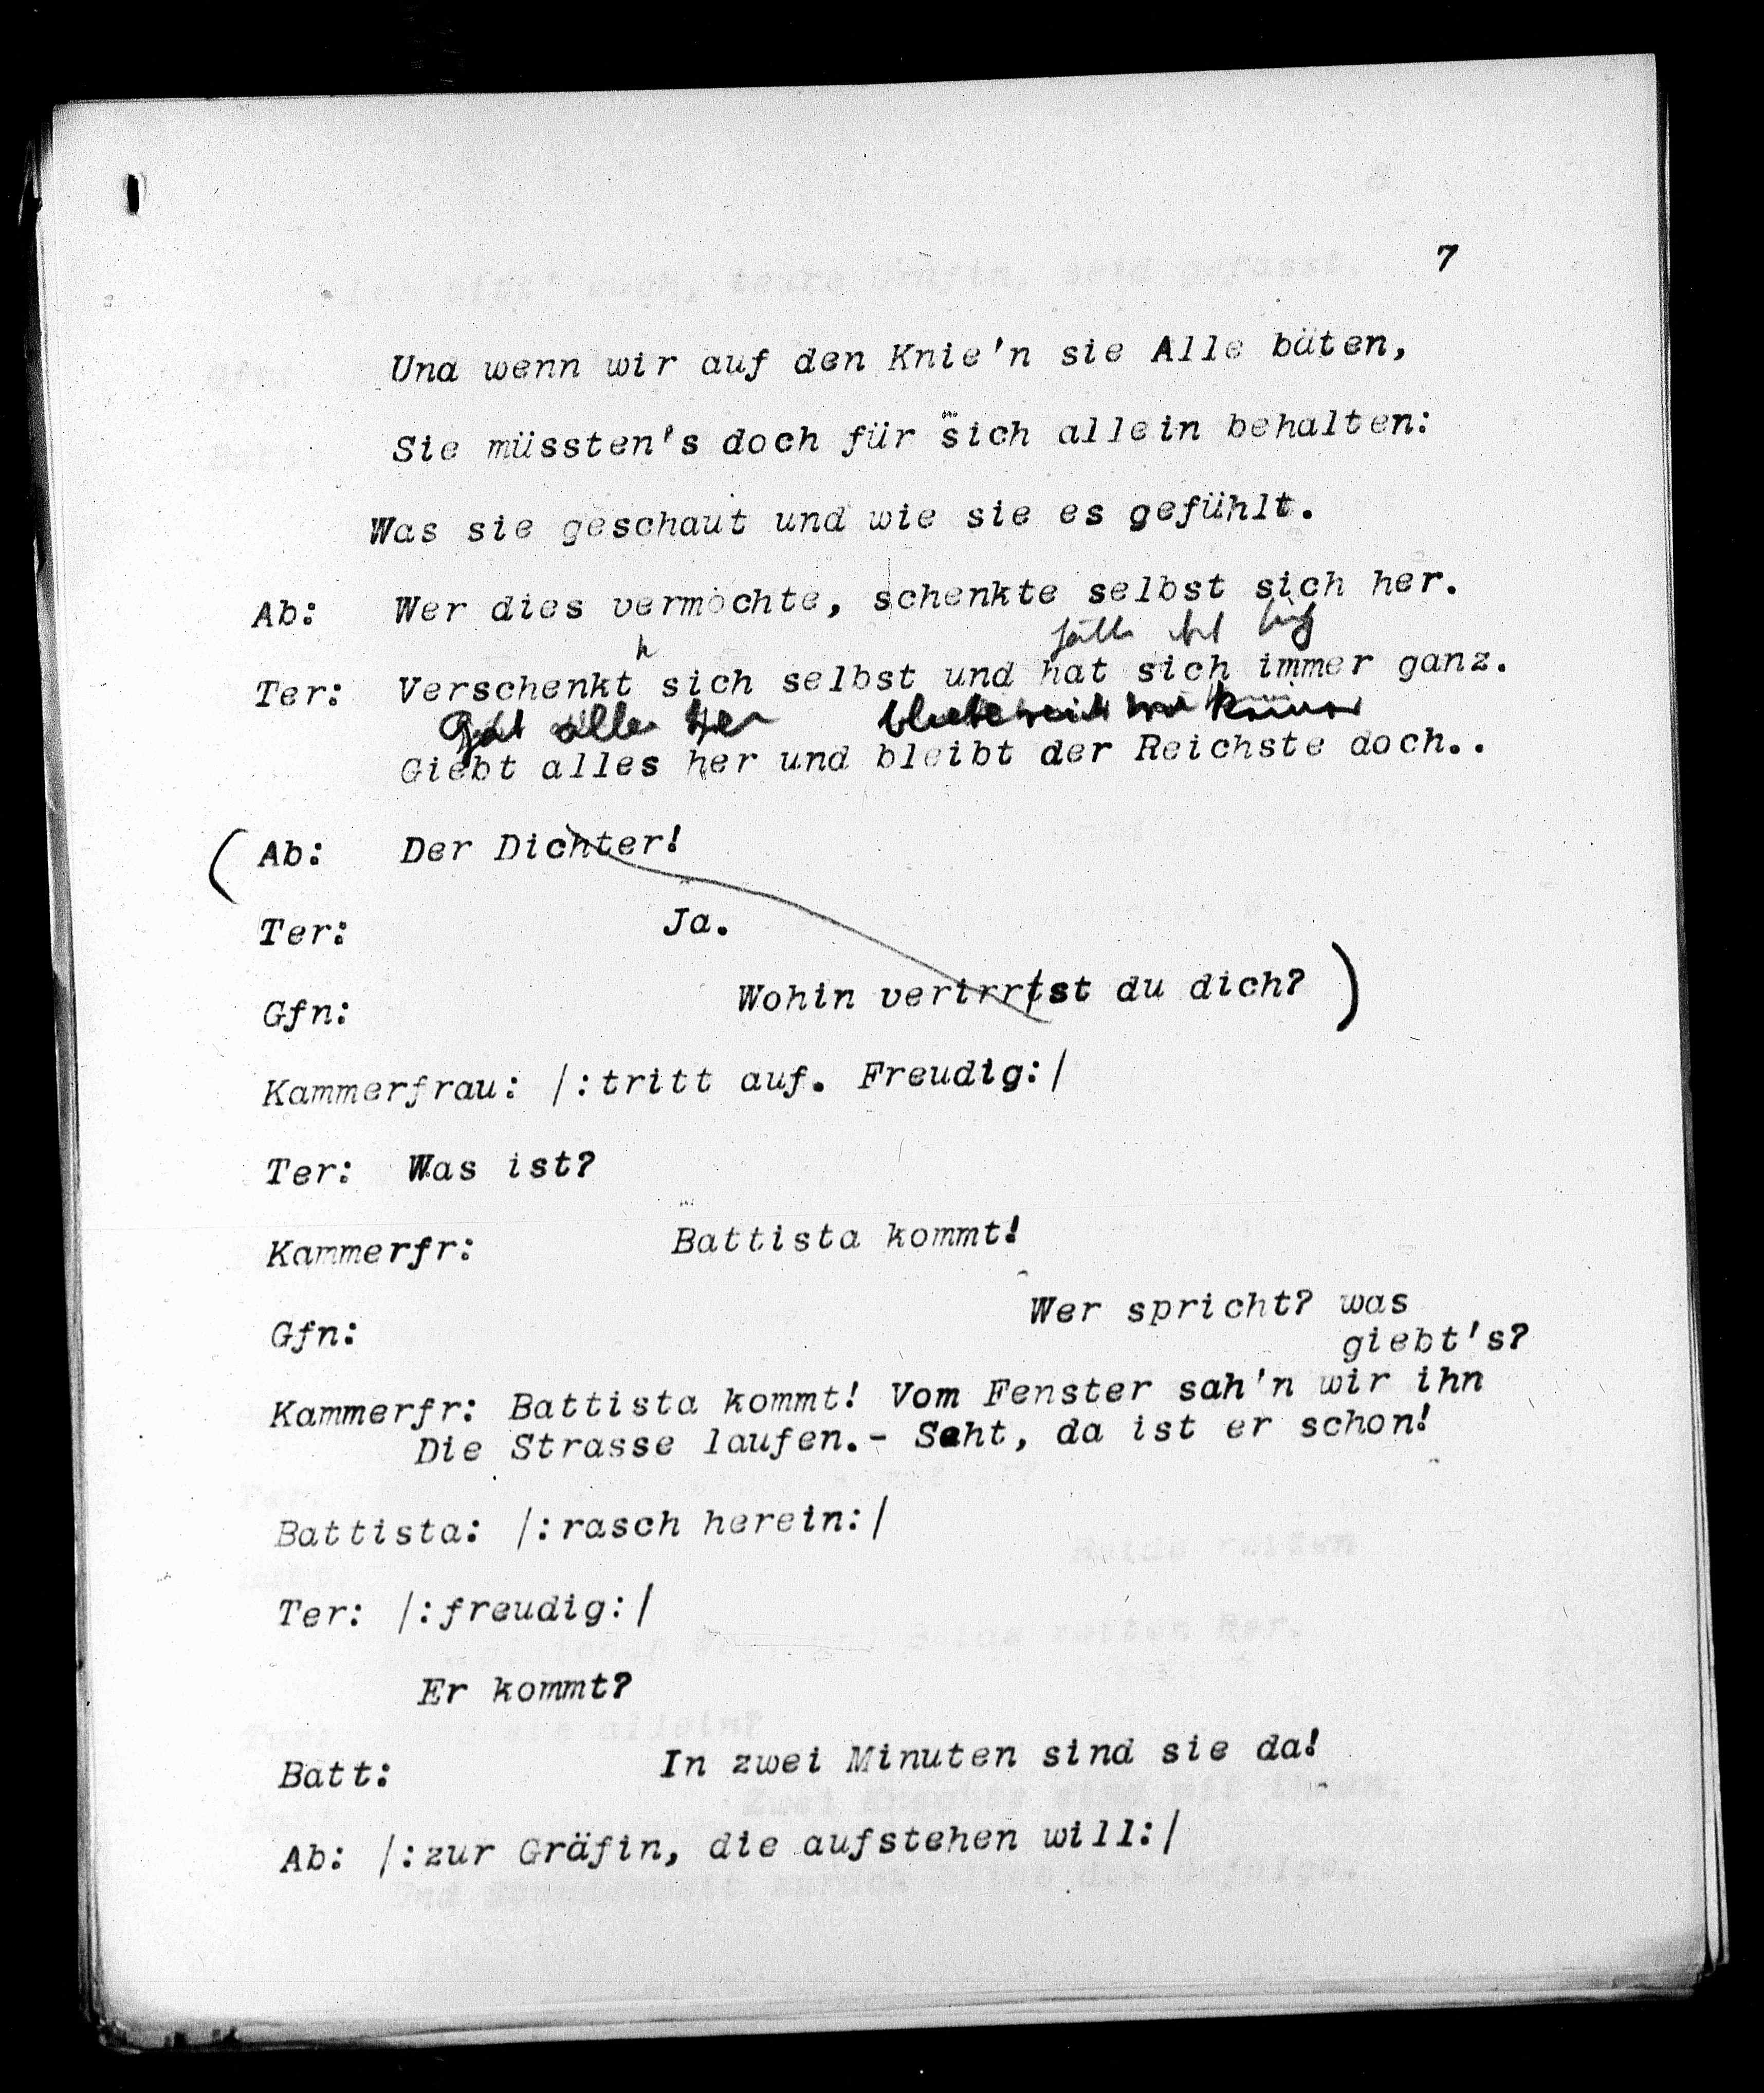 7
Und wenn wir auf den Knie'n sie Alle bäten,
Sie müssten's doch für sich allein behalten:
Was sie geschaut und wie sie es gefühlt.
Ab: Wer dies vermöchte, schenkte selbst sich her.
Ter: Verschenkt sich selbst und hat sich immer ganz.
alles her
Giebt alles her und bleibt der Reichste doch..
(Ab: Der Dichter!
Ter: Ja.
Gfn: Wohin verirrst du dich?)
Kammerfrau: /:tritt auf. Freudig:/
Ter: Was ist?
Kammerfr: Battista kommt!
Gfn: Wer spricht? was
giebt's?
Kammerfr: Battista kommt! Vom Fenster sah'n wir ihn
Die Strasse laufen.- Seht, da ist er schon!
Battista: /:rasch herein:/
Ter: /:freudig:/
Er kommt?
Batt: In zwei Minuten sind sie da!
Ab: /:zur Gräfin, die aufstehen will:/